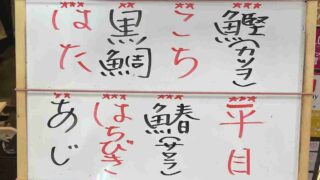 鰹(カツヲ)
こち
黒鯛
はた
平目
鰆(サワラ)
はちびき
あじ